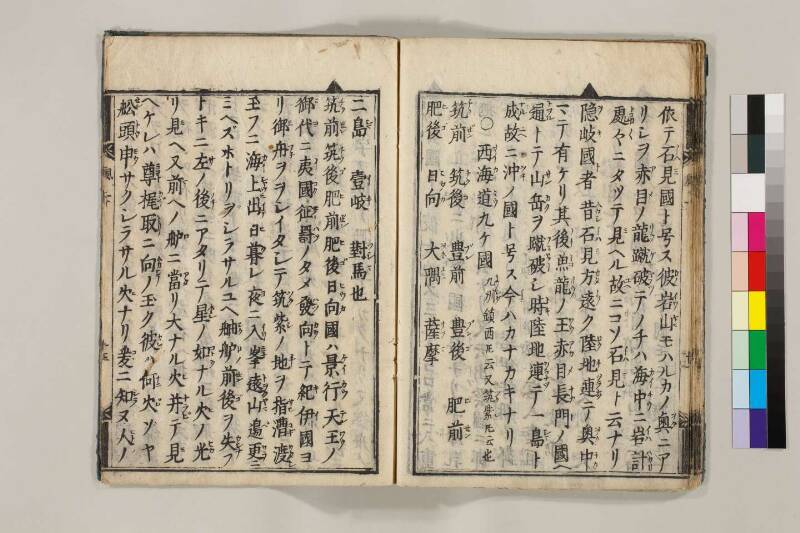 依テ石見國ト号ス彼岩山モハルカノ奥ニア
リシヲ赤目ノ龍蹴破テノチハ海中ニ岩計
處々ニタツテ見ヘル故ニコソ石見ト云ナリ
隠岐國者昔石見方遠ク陸地連テ奥中
ニテ有ケリ其後魚龍ノ王赤目長門ノ國ヘ
通トテ山岳ヲ蹴破シ時陸地連テ一島ト
成故ニ沖ノ國ト号ス今ハカナカキナリ
○西海道九ケ國 九州鎮西氏云又筑紫氏云也
筑前 筑後 豊前 豊後 肥前
肥後 日向 大隅 薩摩
二島 壹岐 對馬也
筑前筑後肥前肥後日向國ハ景行天王ノ
御代ニ夷國征罸ノタメ發向トテ紀伊國ヨ
リ御舟ヲヲシイタシテ筑紫ノ地ヲ指漕渡
玉フニ海上出日暮レ夜ニ入峯遠山邊更ニ
ミヘズホトリヲシラサルユヘ舳舻前後ヲ失フ
トキニ左ノ後ニアタリテ星ノ如ナル火ノ光
リ見ヘ又前ヘノ舻ニ當リ大ナル火并テ見
ヘケレハ尊梶取ニ向ノ玉ク彼ハ何火ソヤ
舩頭申サクシラサル火ナリ爰ニ知ヌ人ノ